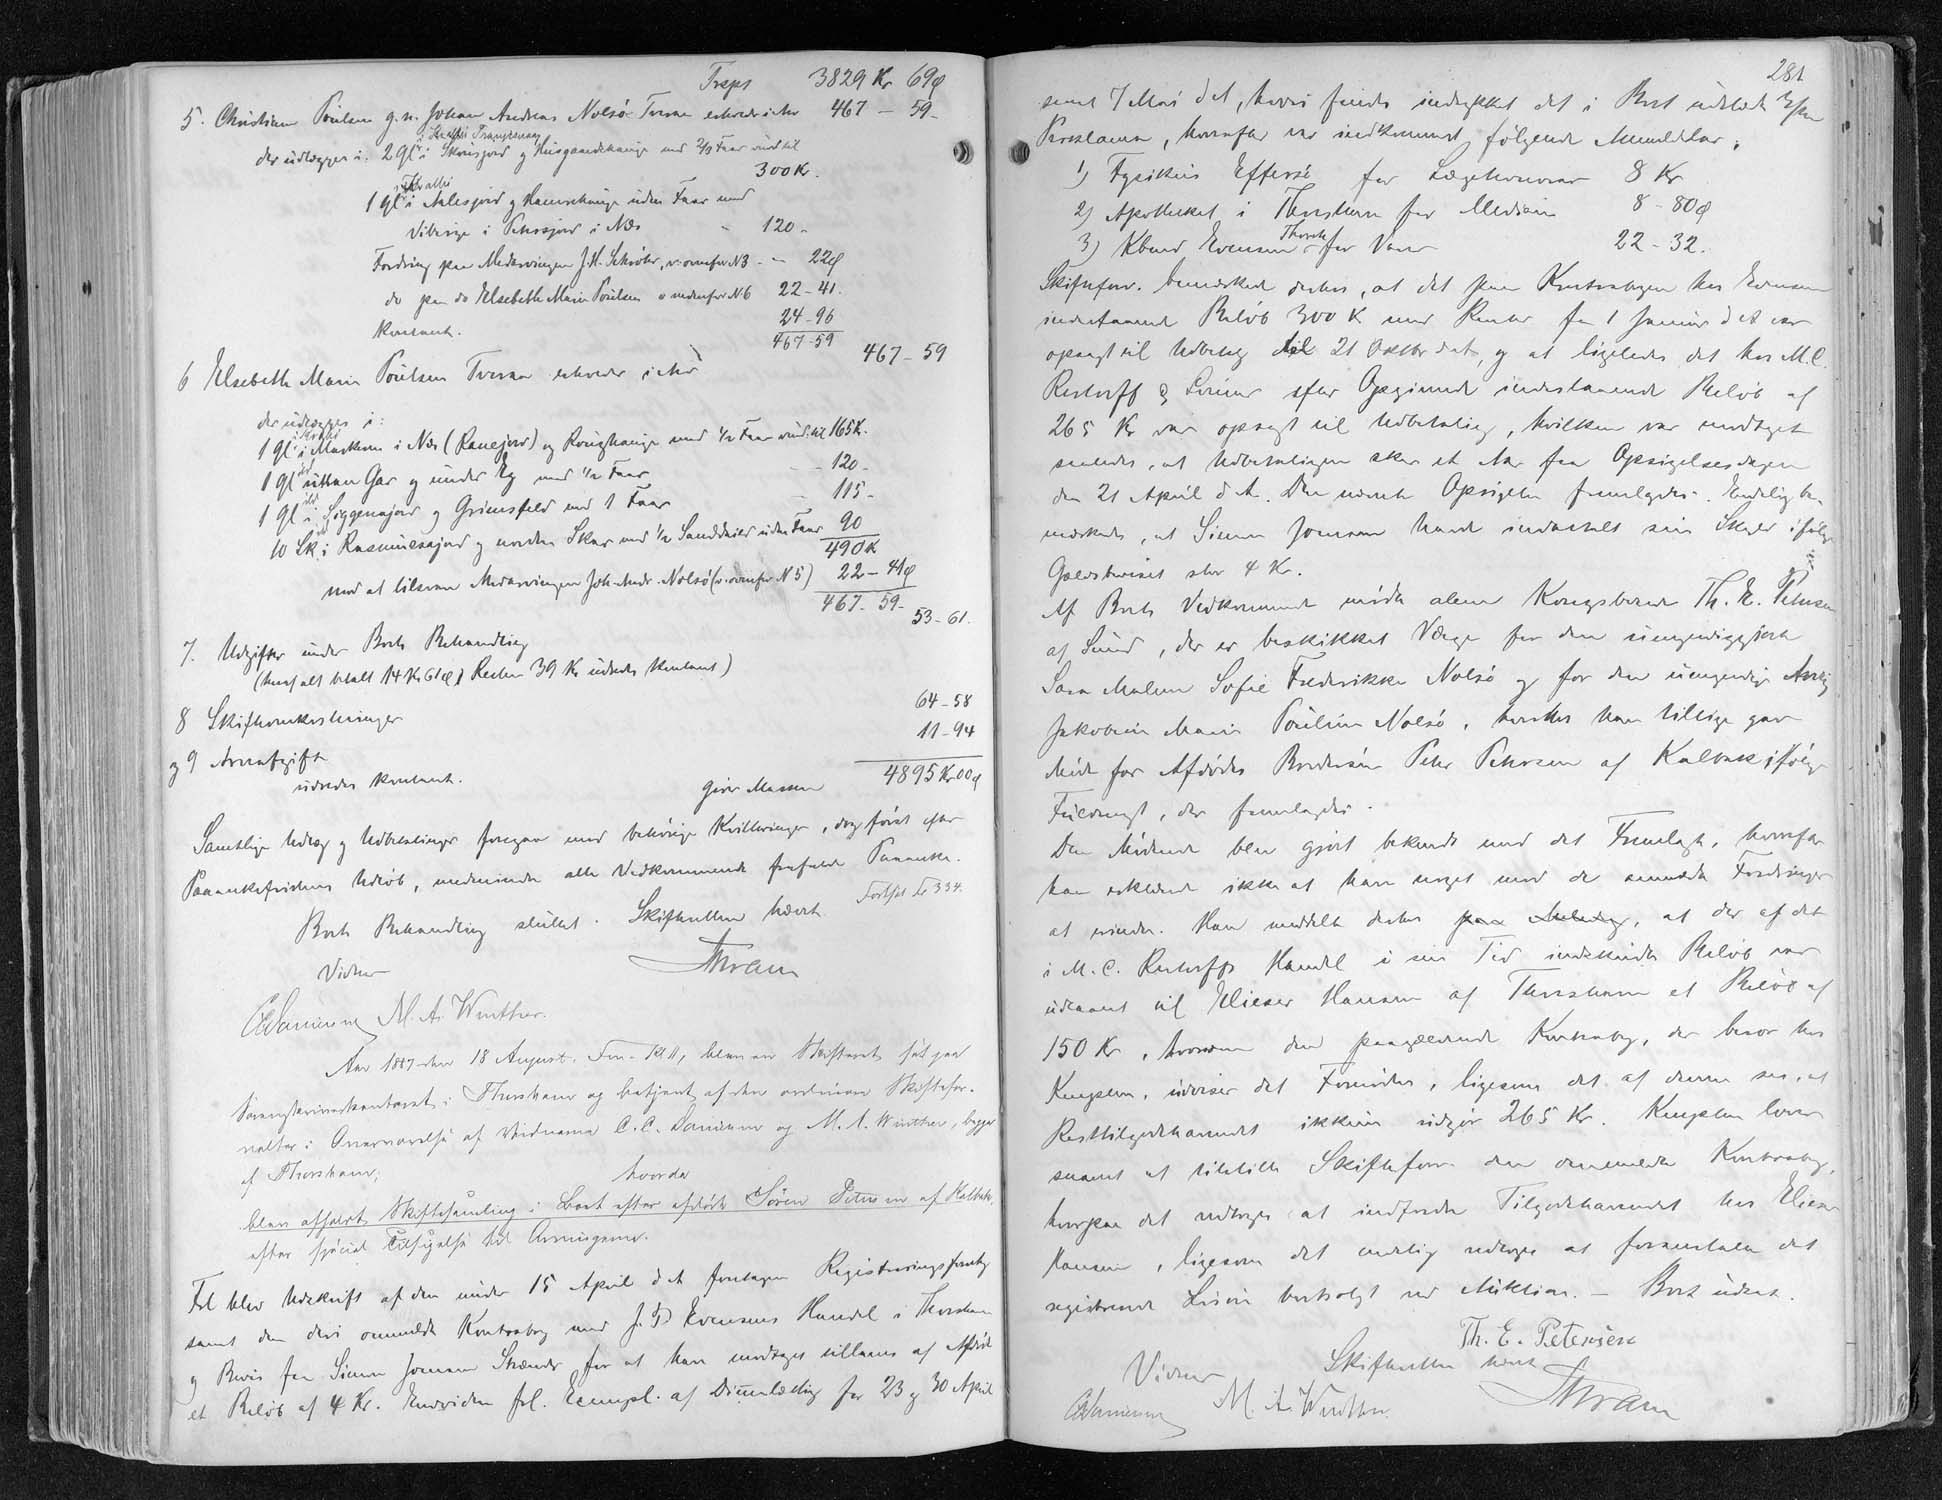 Trspt 3829 Kr 69 Ø
5. Christiane Poulsen g. m. Johan Andreas Nolsö Tveraa erholder i Arv 467 - 59 -
i Krathi Trangisvaag
der udlægges i: 2 Gl i Skousjord og Husgaardshauge med 2/3 Faar vurd til
300 K.
i Krathi
1 Gl i Aalesjord og Hamrehauge uden Faar med
Viberge i Pehrsjord i Næs - 120 -
Fordring paa Medarvingen J. H. Schrøter, v. ovenfor N 3 - - 22 Ø
do paa do Elsebeth Marie Poulsen v nedenfor N 6 22 - 41.
kontant. 24 - 96
467 - 59
6 Elsebeth Marie Poulsen Tveraa erholder i Arv 467 - 59
der udlægges i:
i Krathi
1 Gl i Markens i Næs (Ranejord) og Roughauge med 1/2 Faar vurd. til 165 K.
1 Gl uttan Gar og under Eg med 1/2 Faar - 120 -
1 Gl i Siggenajord og Grimsfeld med 1 Faar - 115 -
10 Sk i Rasmusajord og norden Skar med 1/2 uden Faar 90
490 K
mod at tilsvare Medarvingen Joh. Andr. Nolsö (v. ovenfor N 5) 22 - 41 Ø
467 - 59 -
53 - 61.
7. Udgifter under Boets Behandling
(heraf alt betalt 14 Kr 61 Ø, Resten 39 Kr udredes kontant)
8 Skifteomkostninger 64 - 58
og 9 Arveafgift 11 - 94
udredes kontant.
giver Massen 4895 Kr 00 Ø
Samtlige Udlæg og Udbetalinger foregaar mod behørige Kvitteringer, dog først efter
Paaankefristens Udløb, medmindre alle Vedkommende frafalde Paaanke.
Boets Behandling sluttet. Skifteretten hævet. Fortsat Fo 334.
Vidner
M. A. Winther.
Aar 1887 den 18 August. Fm. Kl 11, blev en Skifteret sat paa
Sorenskriverkontoret i Thorshavn og betjent af den ordinære Skiftefor-
valter i Overværelse af Vidnerne C. C. Danielsen og M. A. Winther, begge
af Thorshavn;
hvorda
blev afholdt Skiftesamling i Boet efter afdøde Sören Petersen af Kalbak,
efter special Tilsigelse til Arvingerne.
Frl blev Udskrift af den under 15 April d A foretagne Registreringsforretng
samt den deri ommeldte Kontrabog med J. D. Evensens Handel i Thorshavn
og Bevis fra Simon Joensen Strænder for at have modtaget tillaans af Afdöde
et Beløb af 4 Kr. Endvidere frl. Exempl. af Dimmalætting for 23 og 30 April
281
samt 7 Mai d A, hvori findes indrykket det i Boet udstedte
Proklama, hvorefter var indkommet følgende Anmeldelser;
1) Fysikus Effersø for Lægehonorar 8 Kr
2) Apotheket i Thorshavn for Medicin 8 - 80 Ø
3) Kbmd Evensen Thorsh for Varer 22 - 32.
Skifteforv. bemærkede derhos, at det paa Kontrabogen hos Evensen
indestaaende Beløb 300 K med Renter fra 1 Januar d A var
opsagt til Udbetalg til 21 Oktbr d A, og at ligeledes det hos M. C.
Restorff & Sönner efter Opgivende indestaaende Beløb af
265 Kr var opsagt til Udbetaling, hvilken var modtaget
saaledes, at Udbetalingen sker et Aar fra Opsigelsesdagen
den 21 April d A. De nævnte Opsigelser fremlagdes. Endelig be-
mærkedes, at Simon Joensen havde indbetalt sin Skyld ifølge
Gældsbeviset stor 4 Kr.
Af Boets Vedkommende mødte alene Kongsbonde Th. E. Petersen
af Sund, der er beskikket Værge for den umyndiggjorte
Sara Malene Sofie Frederikke Nolsö og for den umyndige Arvng
Jakobine Marie Pouline Nolsö, hvorhos han tillige gav
Møde for Afdødes Brodersön Peter Petersen af Kalbak ifølge
Fuldmagt, der fremlagdes.
Den Mødende blev gjort bekendt med det Fremlagte, hvorefter
han erklærede ikke at have noget mod de anmeldte Fordringer
at erindre. Han meddelte derhos paa Anledng, at der af det
i M. C. Restorffs Handel i sin Tid indskudte Beløb var
udlaant til Elieser Hansen af Thorshavn et Beløb af
150 Kr, hvorom den paagældende Kontrabog, der beror hos
Komptn, udviser det Fornødne, ligesom det af denne ses, at
Resttilgodehavendet ikkun udgjør 265 Kr. Komptn lover
snarest at tilstille Skifteforv. den ommeldte Kontrabog,
hvorpaa det vedtoges at indfordre Tilgodehavendet hos Elieser
Hansen, ligesom det endelig vedtoges at foranstalte det
registrerede Løsöre bortsolgt ved Auktion. - Boet udsat.
Th. E. Petersen
Skifteretten hævet
Vidner
M. A. Winther.